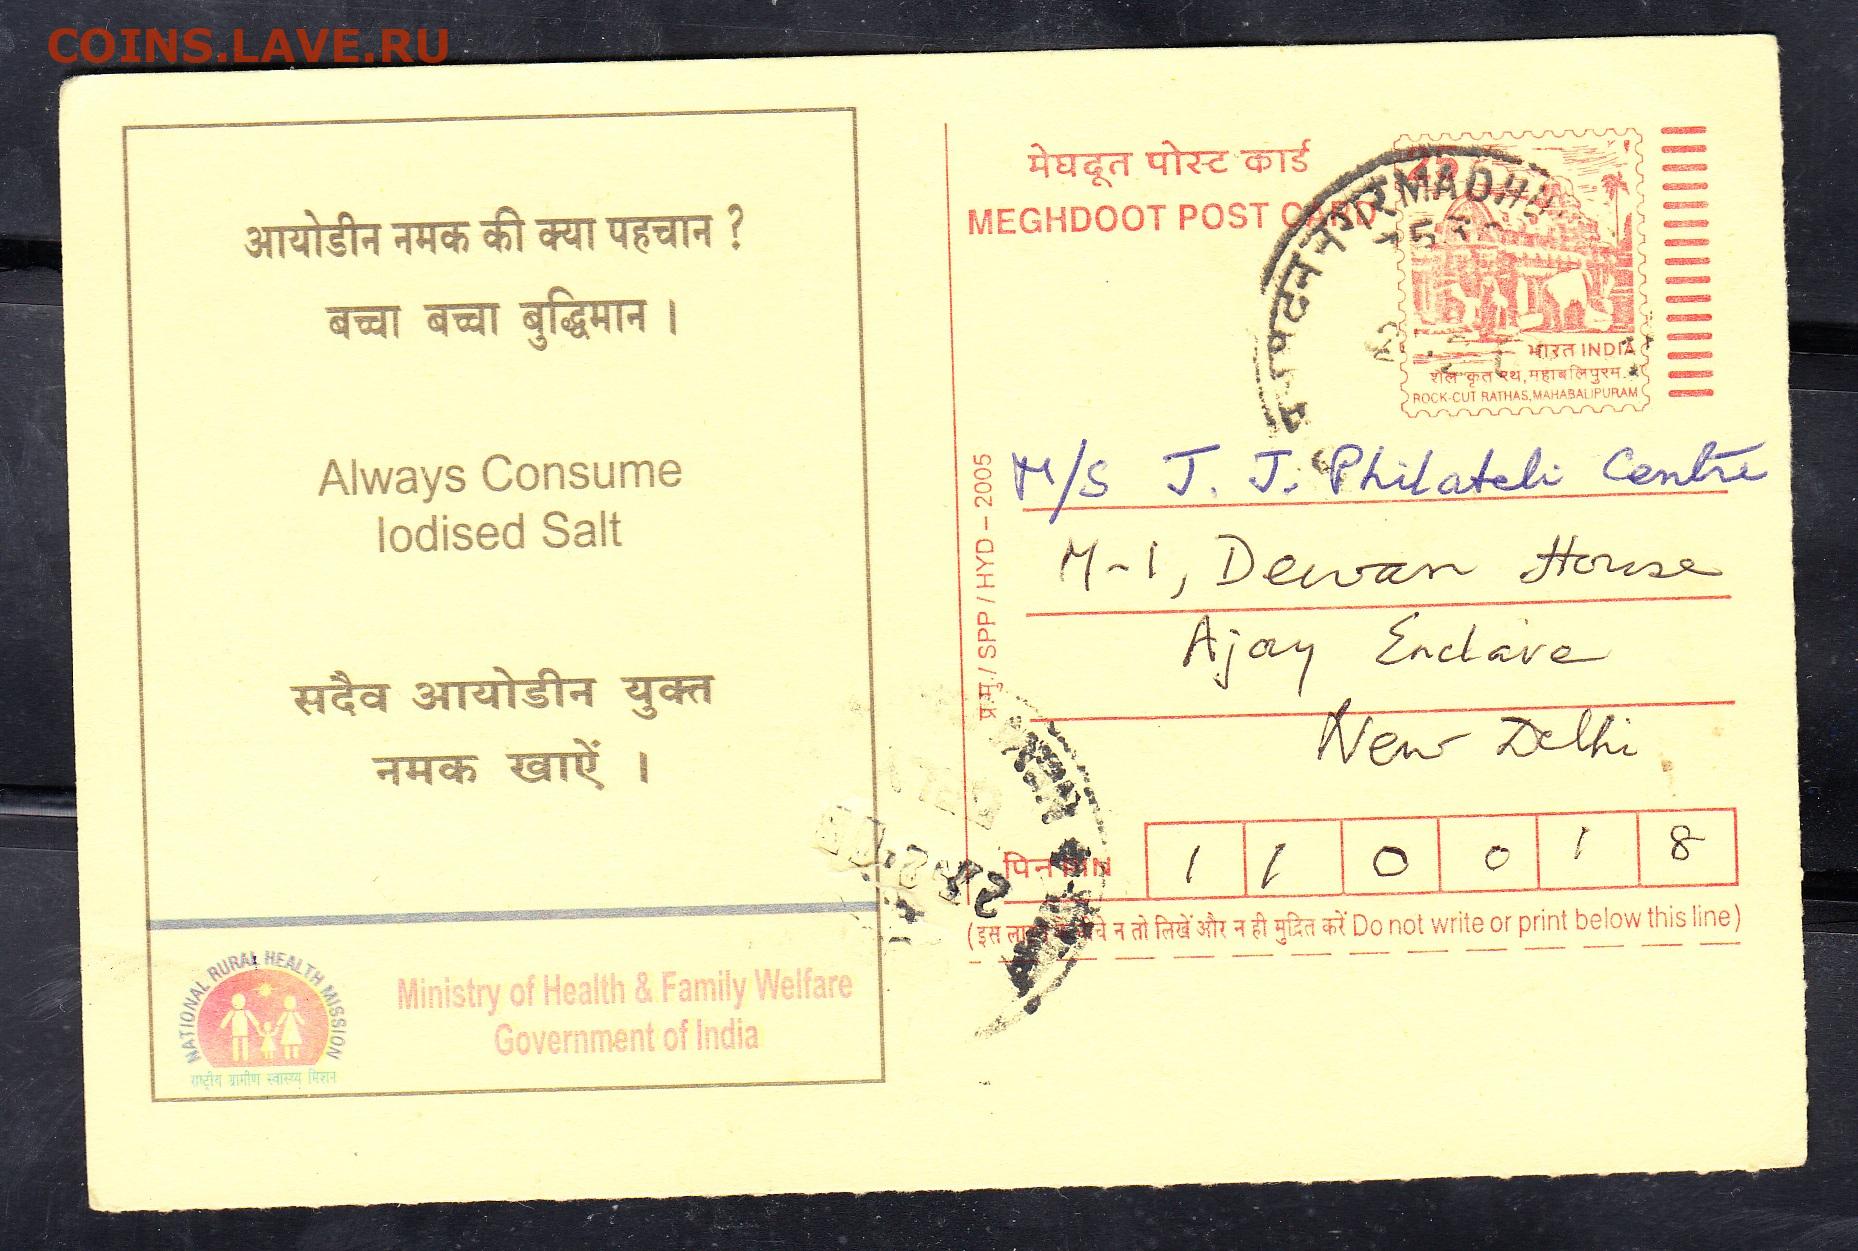 COINS.LAVE.RU
आयोडीन नमक की क्या पहचान ?
बच्चा बच्चा बुद्धिमान ।
Always Consume
Iodised Salt
सदैव आयोडीन युक्त
नमक खाऐं ।
NATIONAL RURAL HEALTH MISSION
राष्ट्रीय ग्रामीण स्वास्थ्य मिशन
Ministry of Health & Family Welfare
Government of India
मेघदूत पोस्ट कार्ड
MEGHDOOT POST CARD
भारत INDIA
शैल कृत रथ, महाबलिपुरम.
ROCK-CUT RATHAS, MAHABALIPURAM
प्र.मु./ SPP / HYD – 2005
M/S J. J. Philateli Centre
M-1, Dewan House
Ajay Enclave
New Delhi
पिन PIN 1 1 0 0 1 8
(इस लाइन के नीचे न तो लिखें और न ही मुद्रित करें Do not write or print below this line)